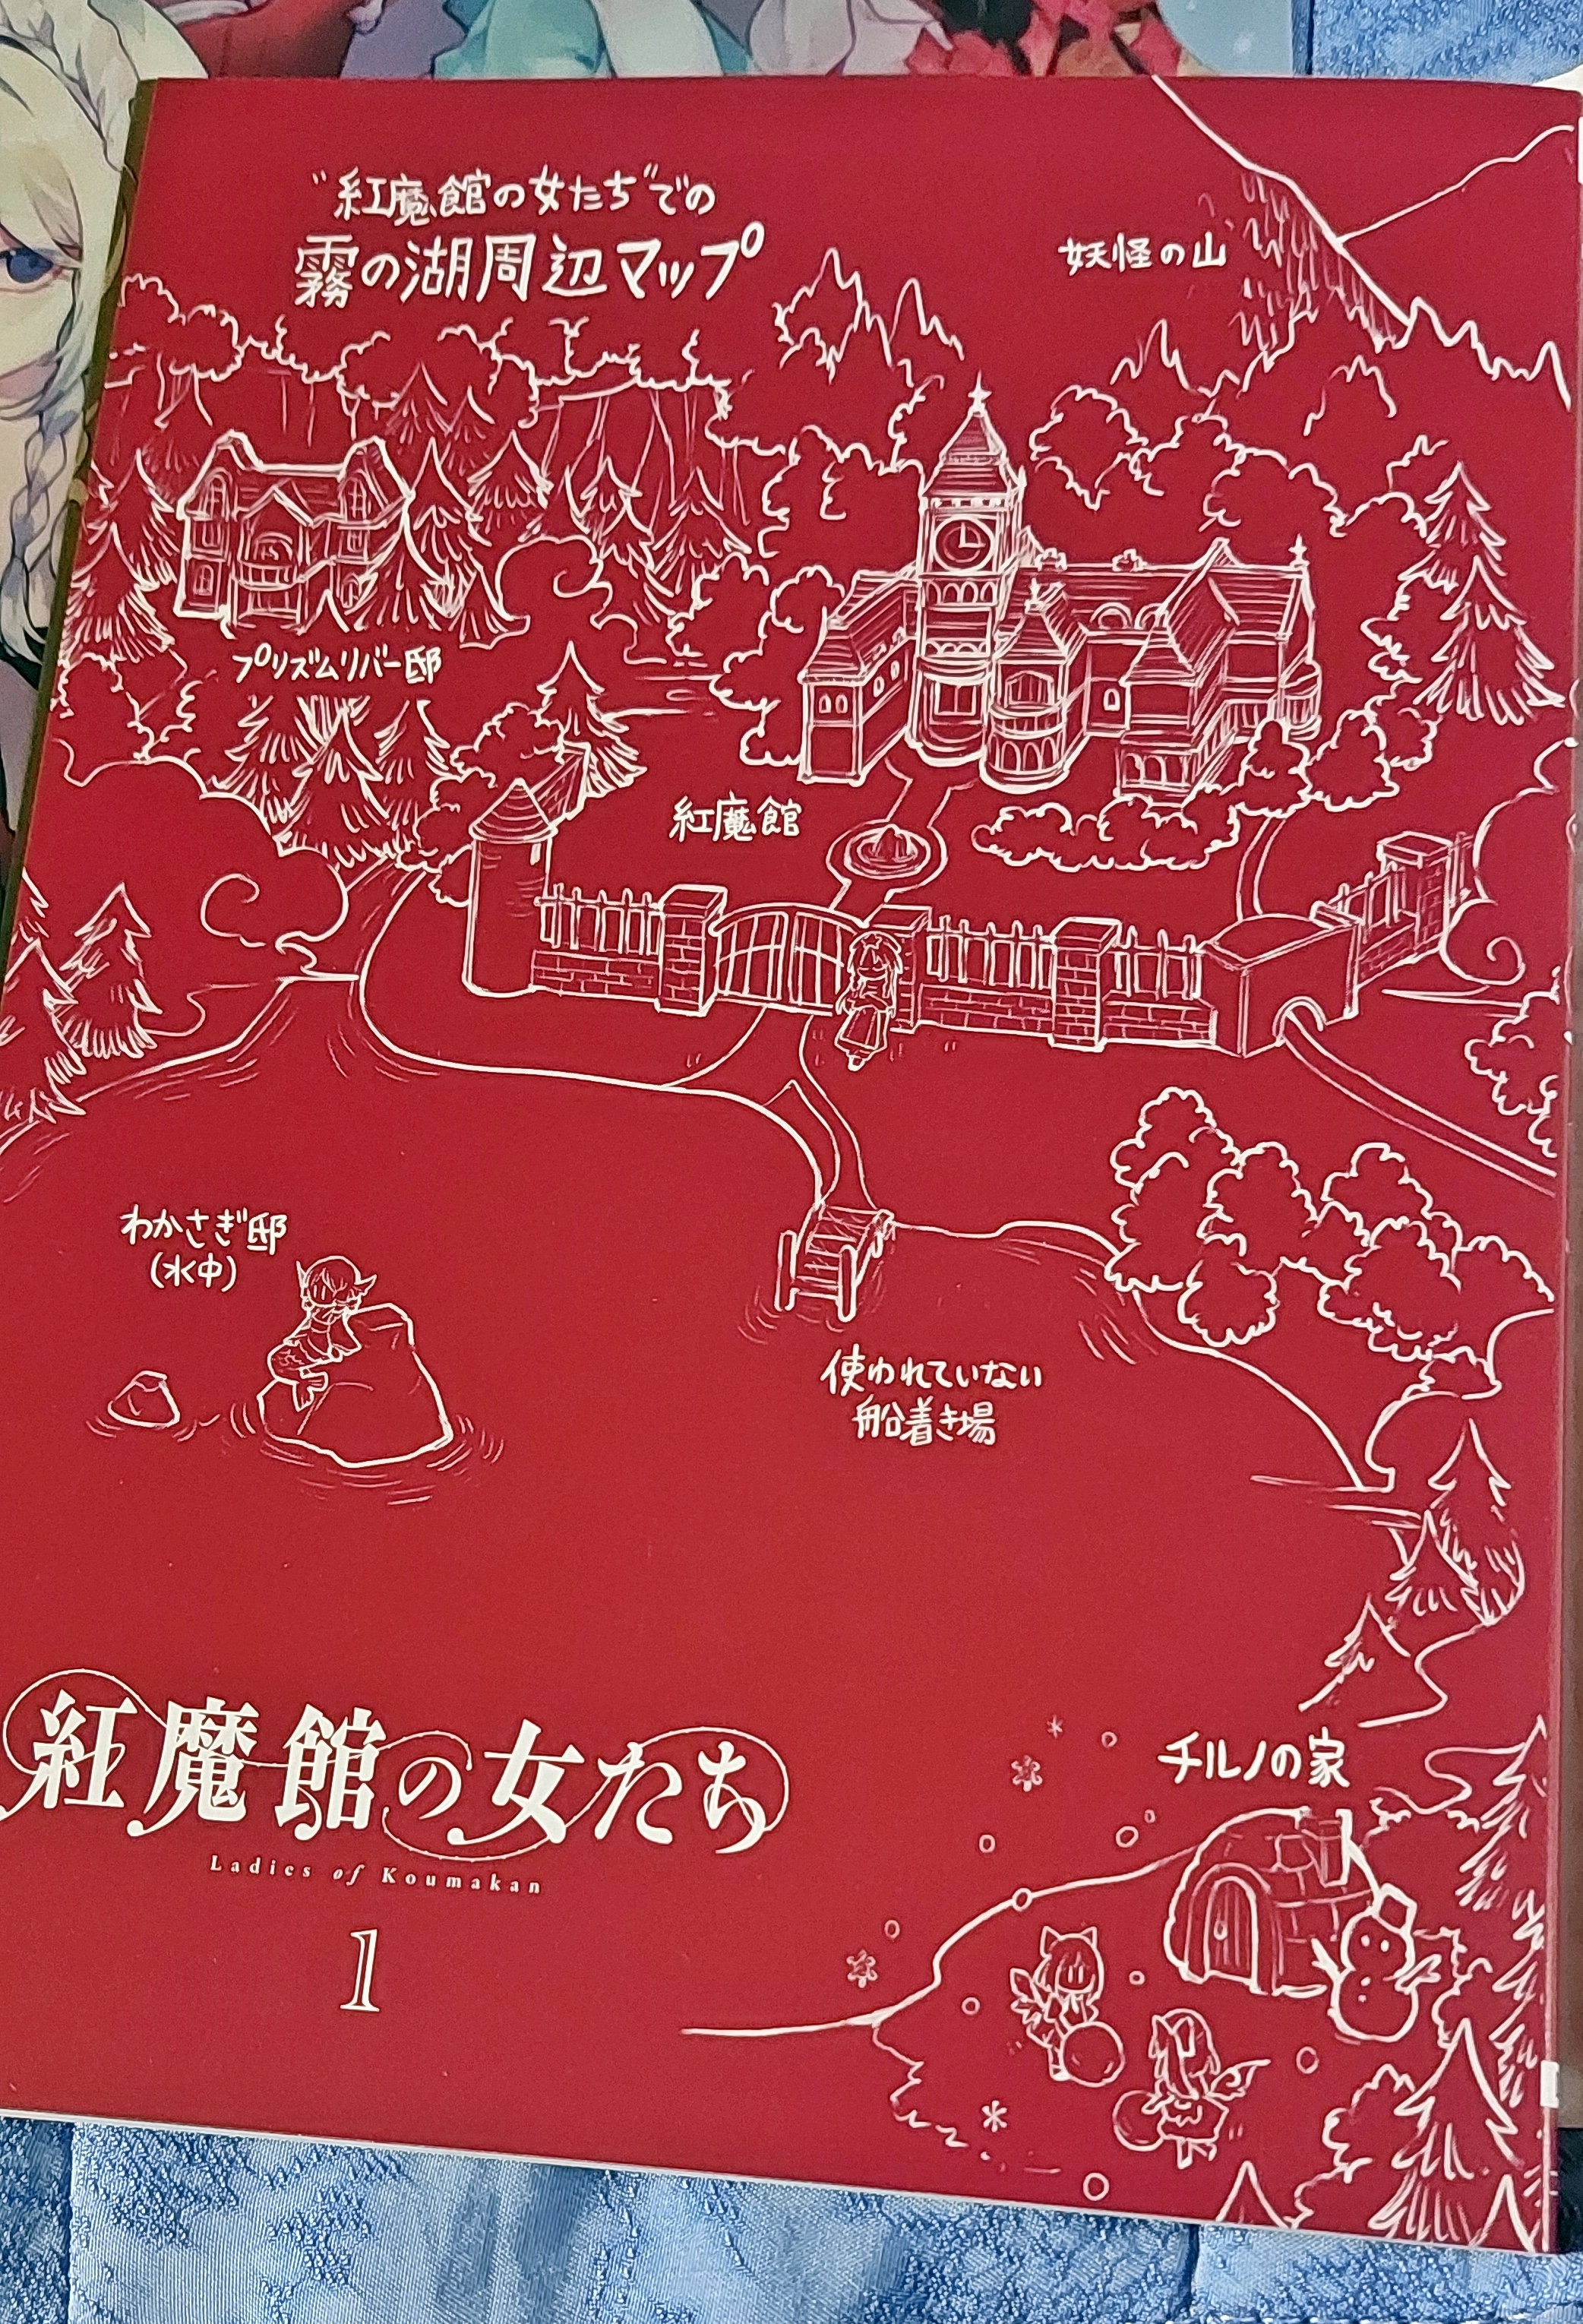 "紅魔館の女たち"での
霧の湖周辺マップ
妖怪の山
プリズムリバー邸
紅魔館
わかさぎ邸
(水中)
使われていない
船着き場
チルノの家
紅魔館の女たち
Ladies of Koumakan
1